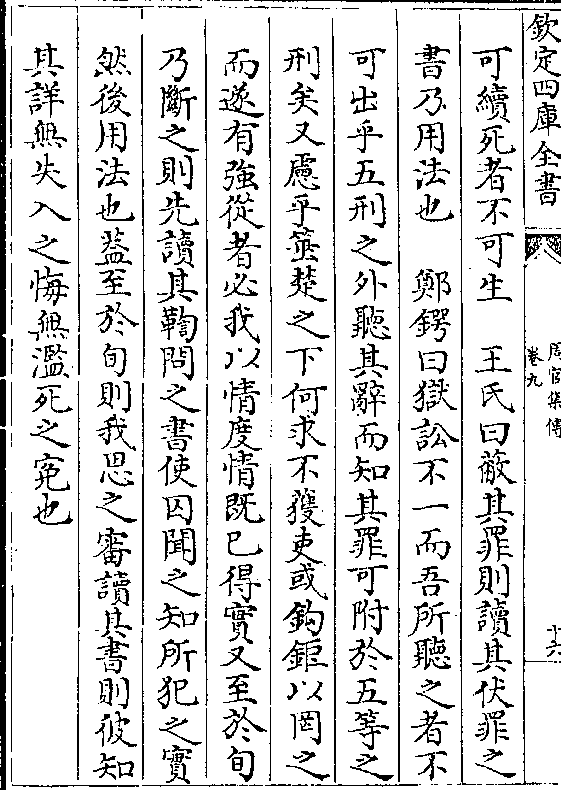 欽定四庫全書
周官集傳
卷九
十六
可續死者不可生　王氏曰蔽其罪則讀其伏罪之
書乃用法也　鄭鍔曰獄訟不一而吾所聽之者不
可出乎五刑之外聽其辭而知其罪可附於五等之
刑矣又慮乎箠楚之下何求不獲吏或鈎鉅以罔之
而遂有強從者必我以情度情既已得實又至於旬
乃斷之則先讀其鞫問之書使囚聞之知所犯之實
然後用法也葢至於旬則我思之審讀其書則彼知
其詳無失入之悔無濫死之寃也